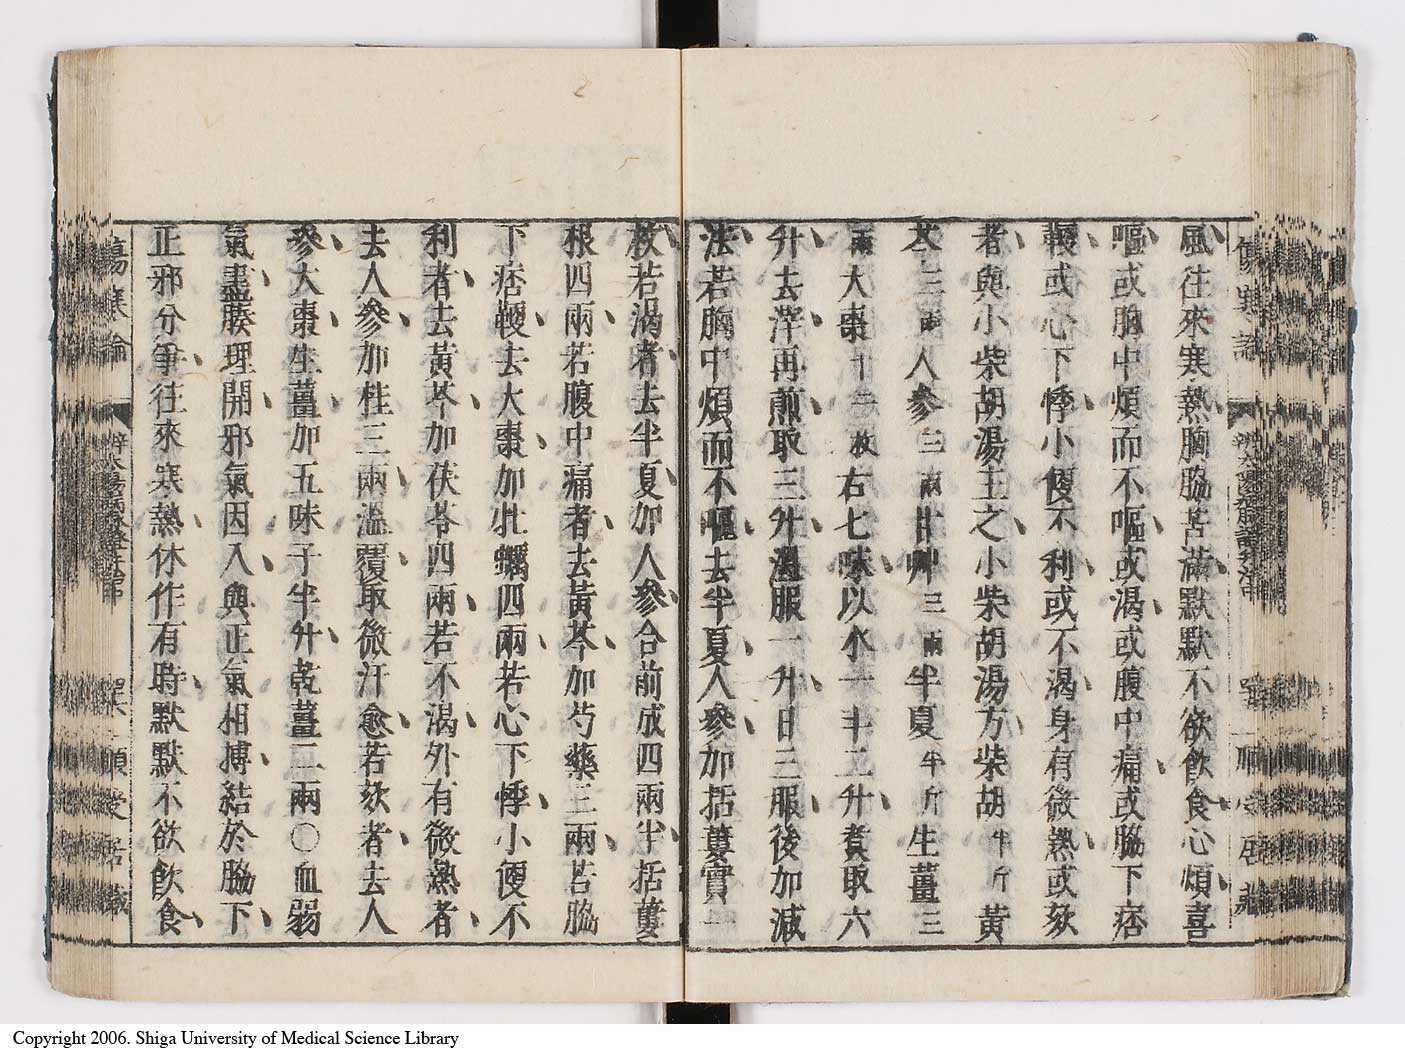 風往來寒熱胸脇苦滿默默不欲飲食心煩喜
嘔或胸中煩而不嘔或渴或腹中痛或脇下痞
鞕或心下悸小便不利或不渴身有微熱或欬
者與小柴胡湯主之小柴胡湯方柴胡半斤黃
芩三兩人參三兩甘艸三兩半夏半斤生薑三
兩大棗十二枚右七味以水一斗二升煑取六
升去滓再煎取三升溫服一升日三服後加減
法若胸中煩而不嘔去半夏人參加括蔞實一
枚若渴者去半夏加人參合前成四兩半括蔞
根四兩若腹中痛者去黃芩加芍藥三兩若脇
下痞鞕去大棗加牡蠣四兩若心下悸小便不
利者去黃芩加茯苓四兩若不渴外有微熱者
去人參加桂三兩溫覆取微汗愈若欬者去人
參大棗生薑加五味子半升乾薑二兩〇血弱
氣盡腠理開邪氣因入與正氣相搏結於脇下
正邪分爭往來寒熱休作有時默默不欲飲食
傷寒論
Copyright 2006. Shiga University of Medical Science Library